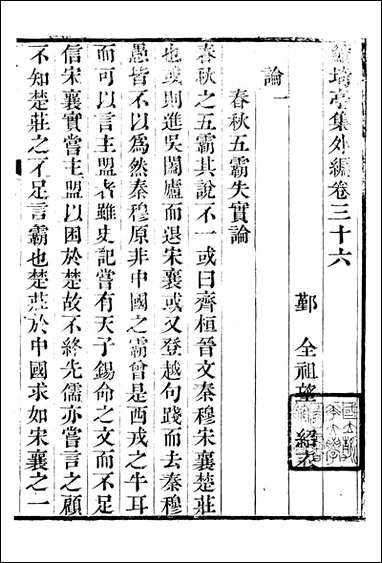 鮚埼亭集外編卷三十六
鄞 全祖望 紹衣
論一
春秋五霸失實論
春秋之五霸其說不一或曰齊桓晉文秦穆宋襄楚莊
也或則進吳闔廬而退宋襄或又登越句踐而去秦穆
愚皆不以爲然秦穆原非中國之霸曾是西戎之牛耳
而可以言主盟者雖史記嘗有天子錫命之文而不足
信宋襄實嘗主盟以困於楚故不終先儒亦嘗言之顧
不知楚莊之不足言霸也楚莊於中國求如宋襄之一